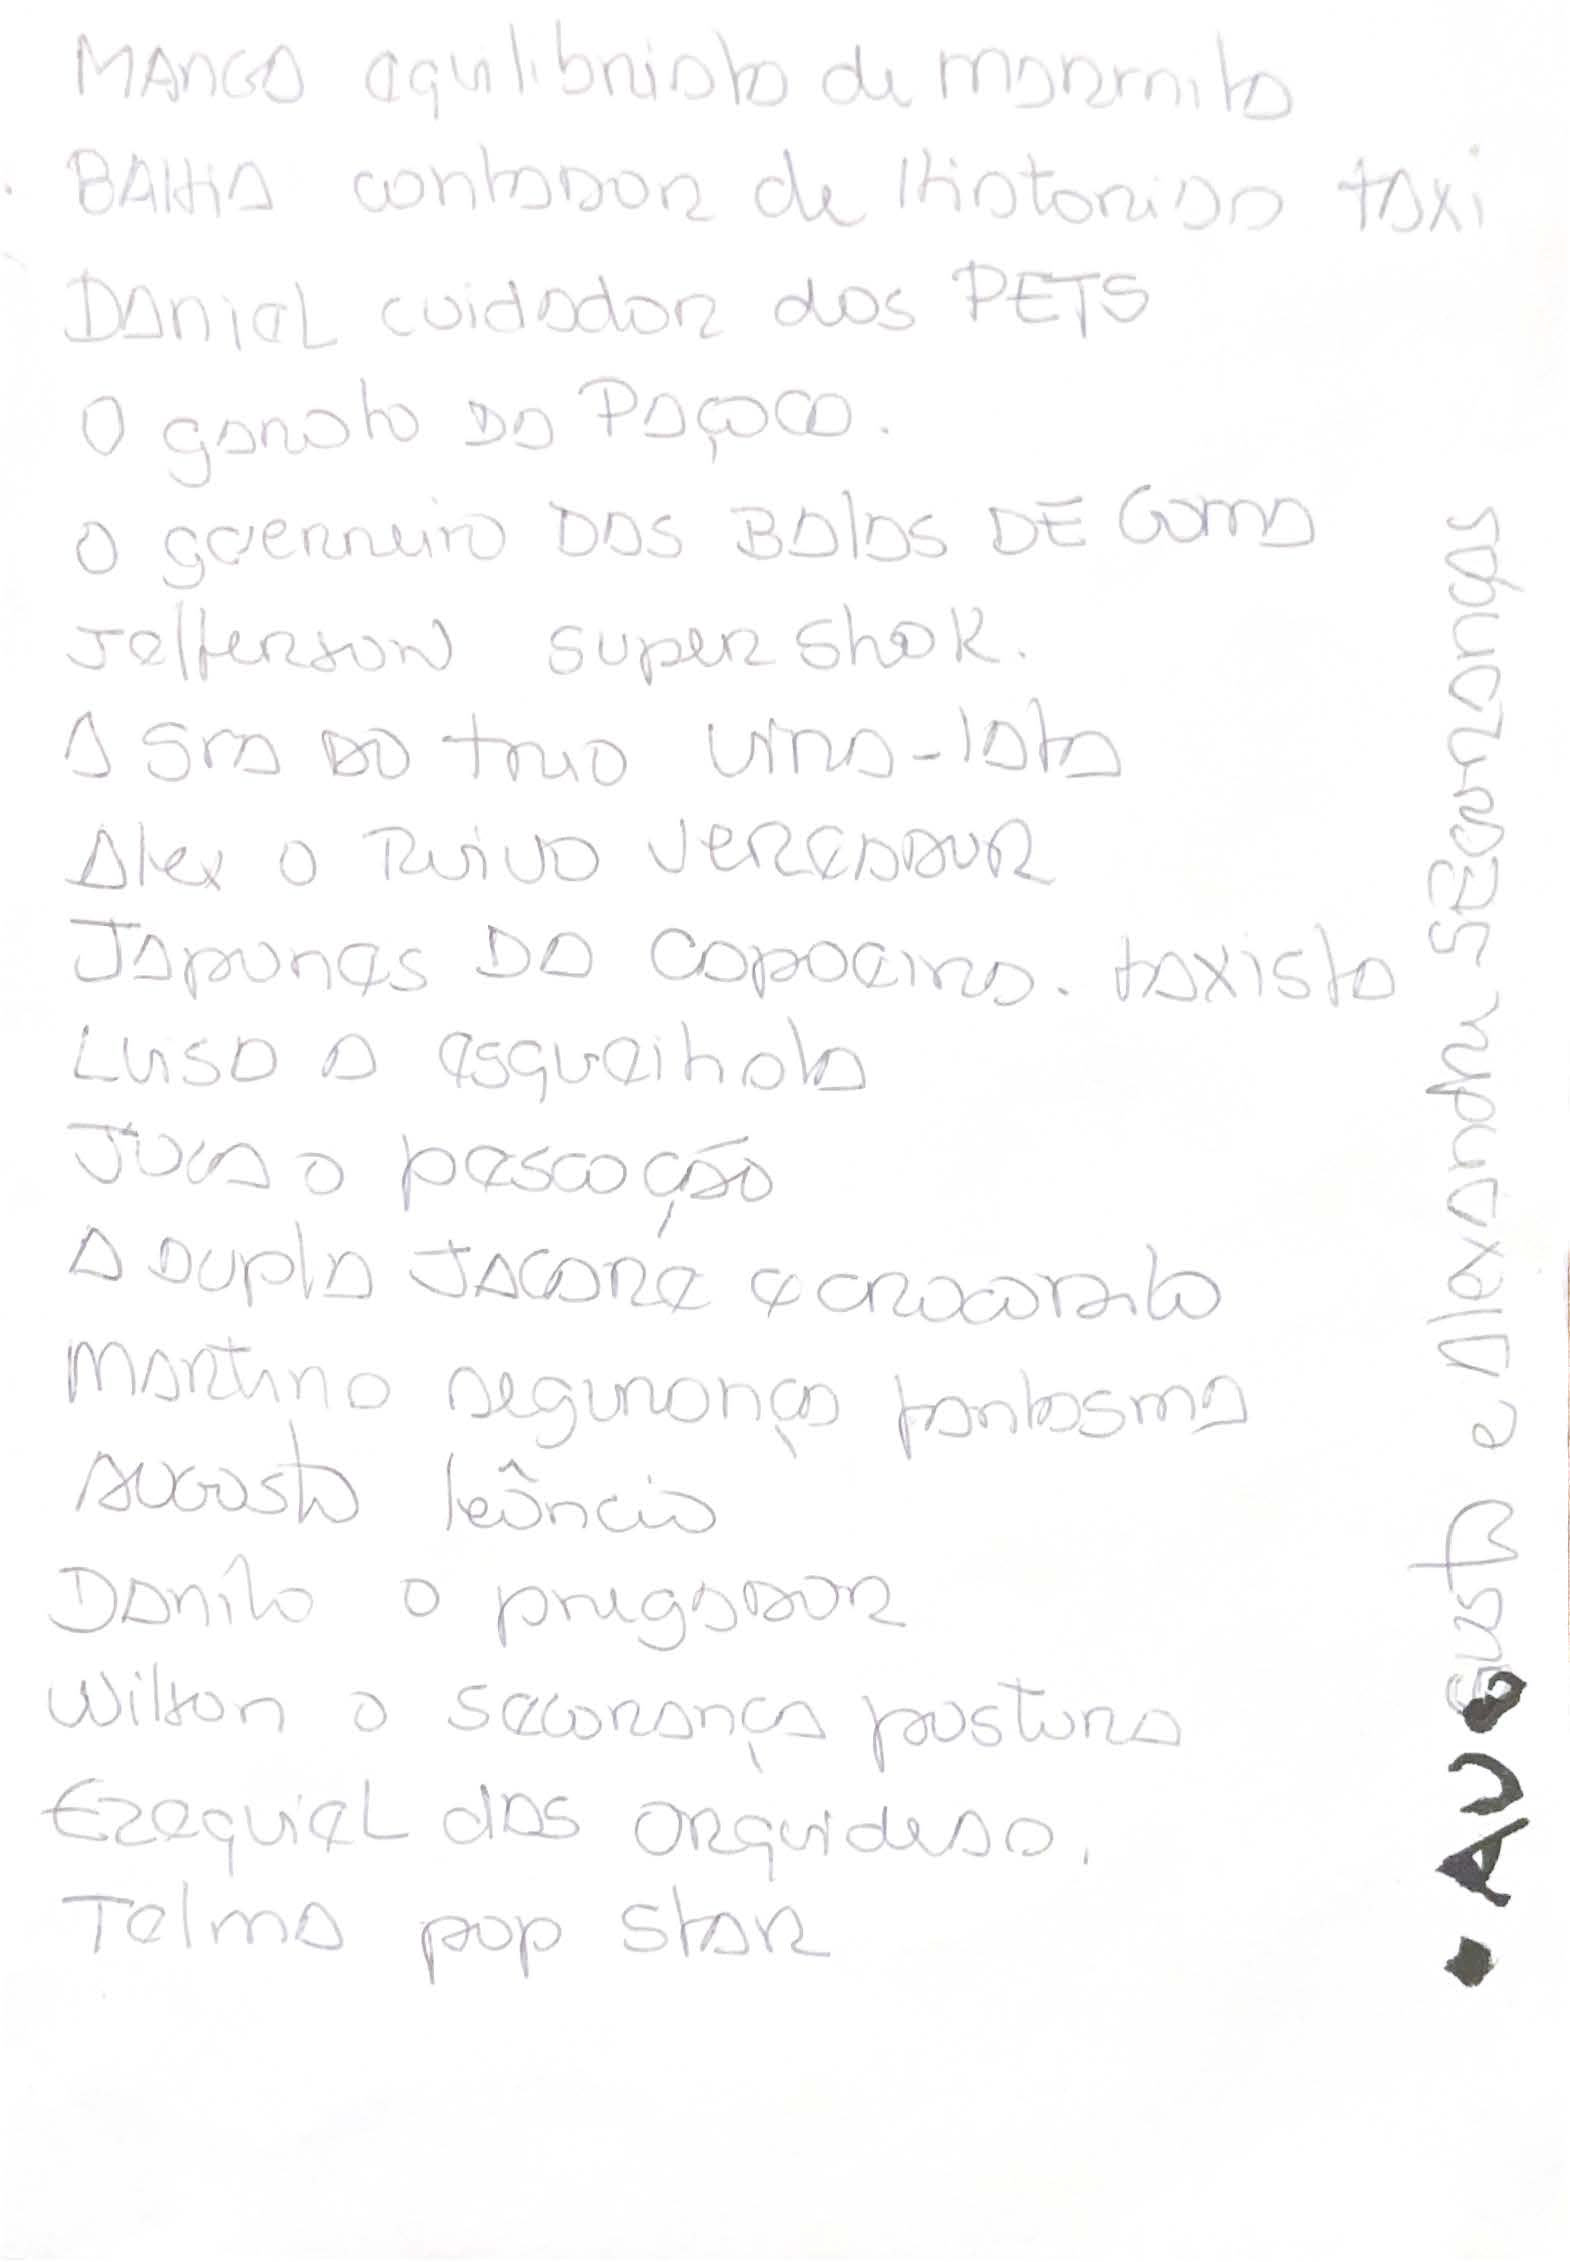 MANGA equilibrista de marmita
BAHIA contador de Historias taxi
Daniel cuidador dos PETS
O garoto da Paçoca.
O guerreiro DAS BALAS DE GOMA
Jefferson super shok.
A Sra do trio vira-lata
Alex o Ruivo vereador
Japones DA capoeira. taxista
Luisa a esqueihola
Juca o pescoção
A Dupla JACARE e crocodilo
Martino segurança fantasma
Augusto leôncio
Danilo o pregador
Wilson o segurança postura
Ezequiel das orquideas.
Telma pop star
• AUGusto e Alexandre seguranças